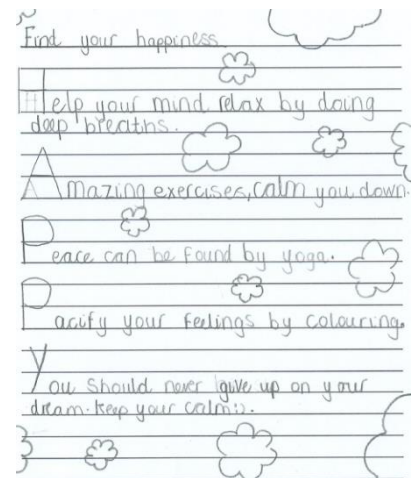 Find your happiness.
Help your mind relax by doing
deep breaths.
Amazing exercises, calm you down.
Peace can be found by yoga.
Pacify your feelings by colouring.
You should never give up on your
dream. keep your calm:).